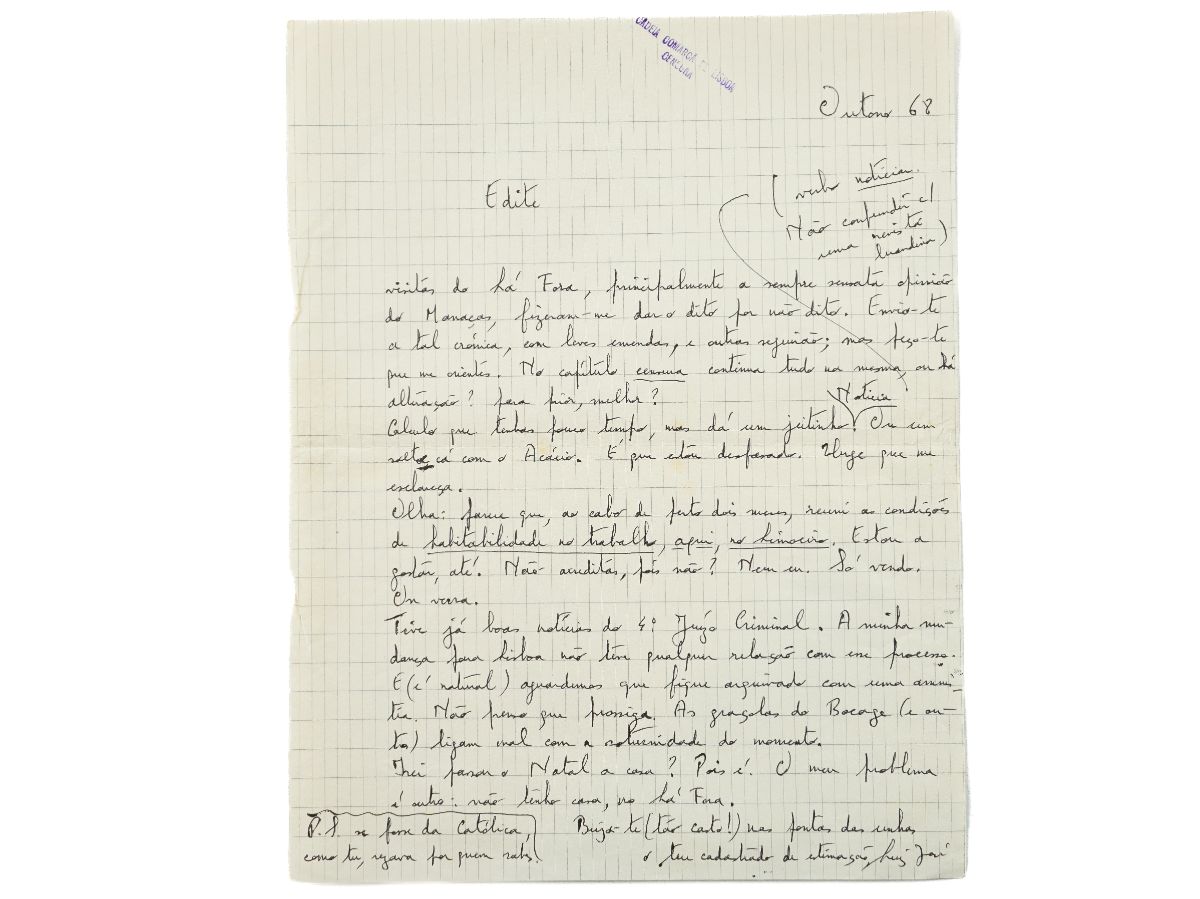 CADEIA COMARCA DE LISBOA
CENSURA
Outono 68
Edite
(verbo noticiar.
Não confundir c/
uma revista
luandina)
visitas do há Fora, principalmente a sempre sensata opinião
do Manaças, fizeram-me dar o dito por não dito. Envio-te
a tal crónica, com leves emendas, e outras seguirão; mas peço-te
que me orientes. No capítulo censura continua tudo na mesma, ou há
alteração? para pior, melhor?
Notícia!
Calculo que tenhas pouco tempo, mas dá um jeitinho. Ou um
salto cá com o Acácio. É que estou desfasado. Urge que me
esclareça.
Olha: parece que, ao cabo de perto dois meses, reuni as condições
de habitabilidade no trabalho, aqui, no Limoeiro. Estou a
gostar, até. Não acreditas, pois não? Nem eu. Só vendo.
On verra.
Tive já boas notícias do 4º Juízo Criminal. A minha mu-
dança para Lisboa não têm qualquer relação com esse processo.
E (é natural) aguardemos que fique arquivado com uma amnis-
tia. Não penso que prossiga. As graçolas do Bocage (e ou-
tros) ligam mal com a soturnidade do momento.
Irei passar o Natal a casa? Pois é. O meu problema
é outro: não tenho casa, no há Fora.
Beijo-te (tão casto!) nas pontas das unhas
o teu cadastrado de estimação, Luiz José
P.S. se fosse da Católica,
como tu, rezava por quem sabes!